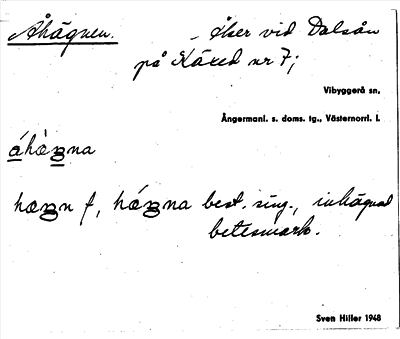 Åhägnen. – Åker vid Dalsån
på Käxed nr 7;
Vibyggerå sn.
Ångermanl. s. doms. tg., Västernorrl. l.
hæŋn f, best. sing., inhägnad
betesmark.
Sven Hiller 1948